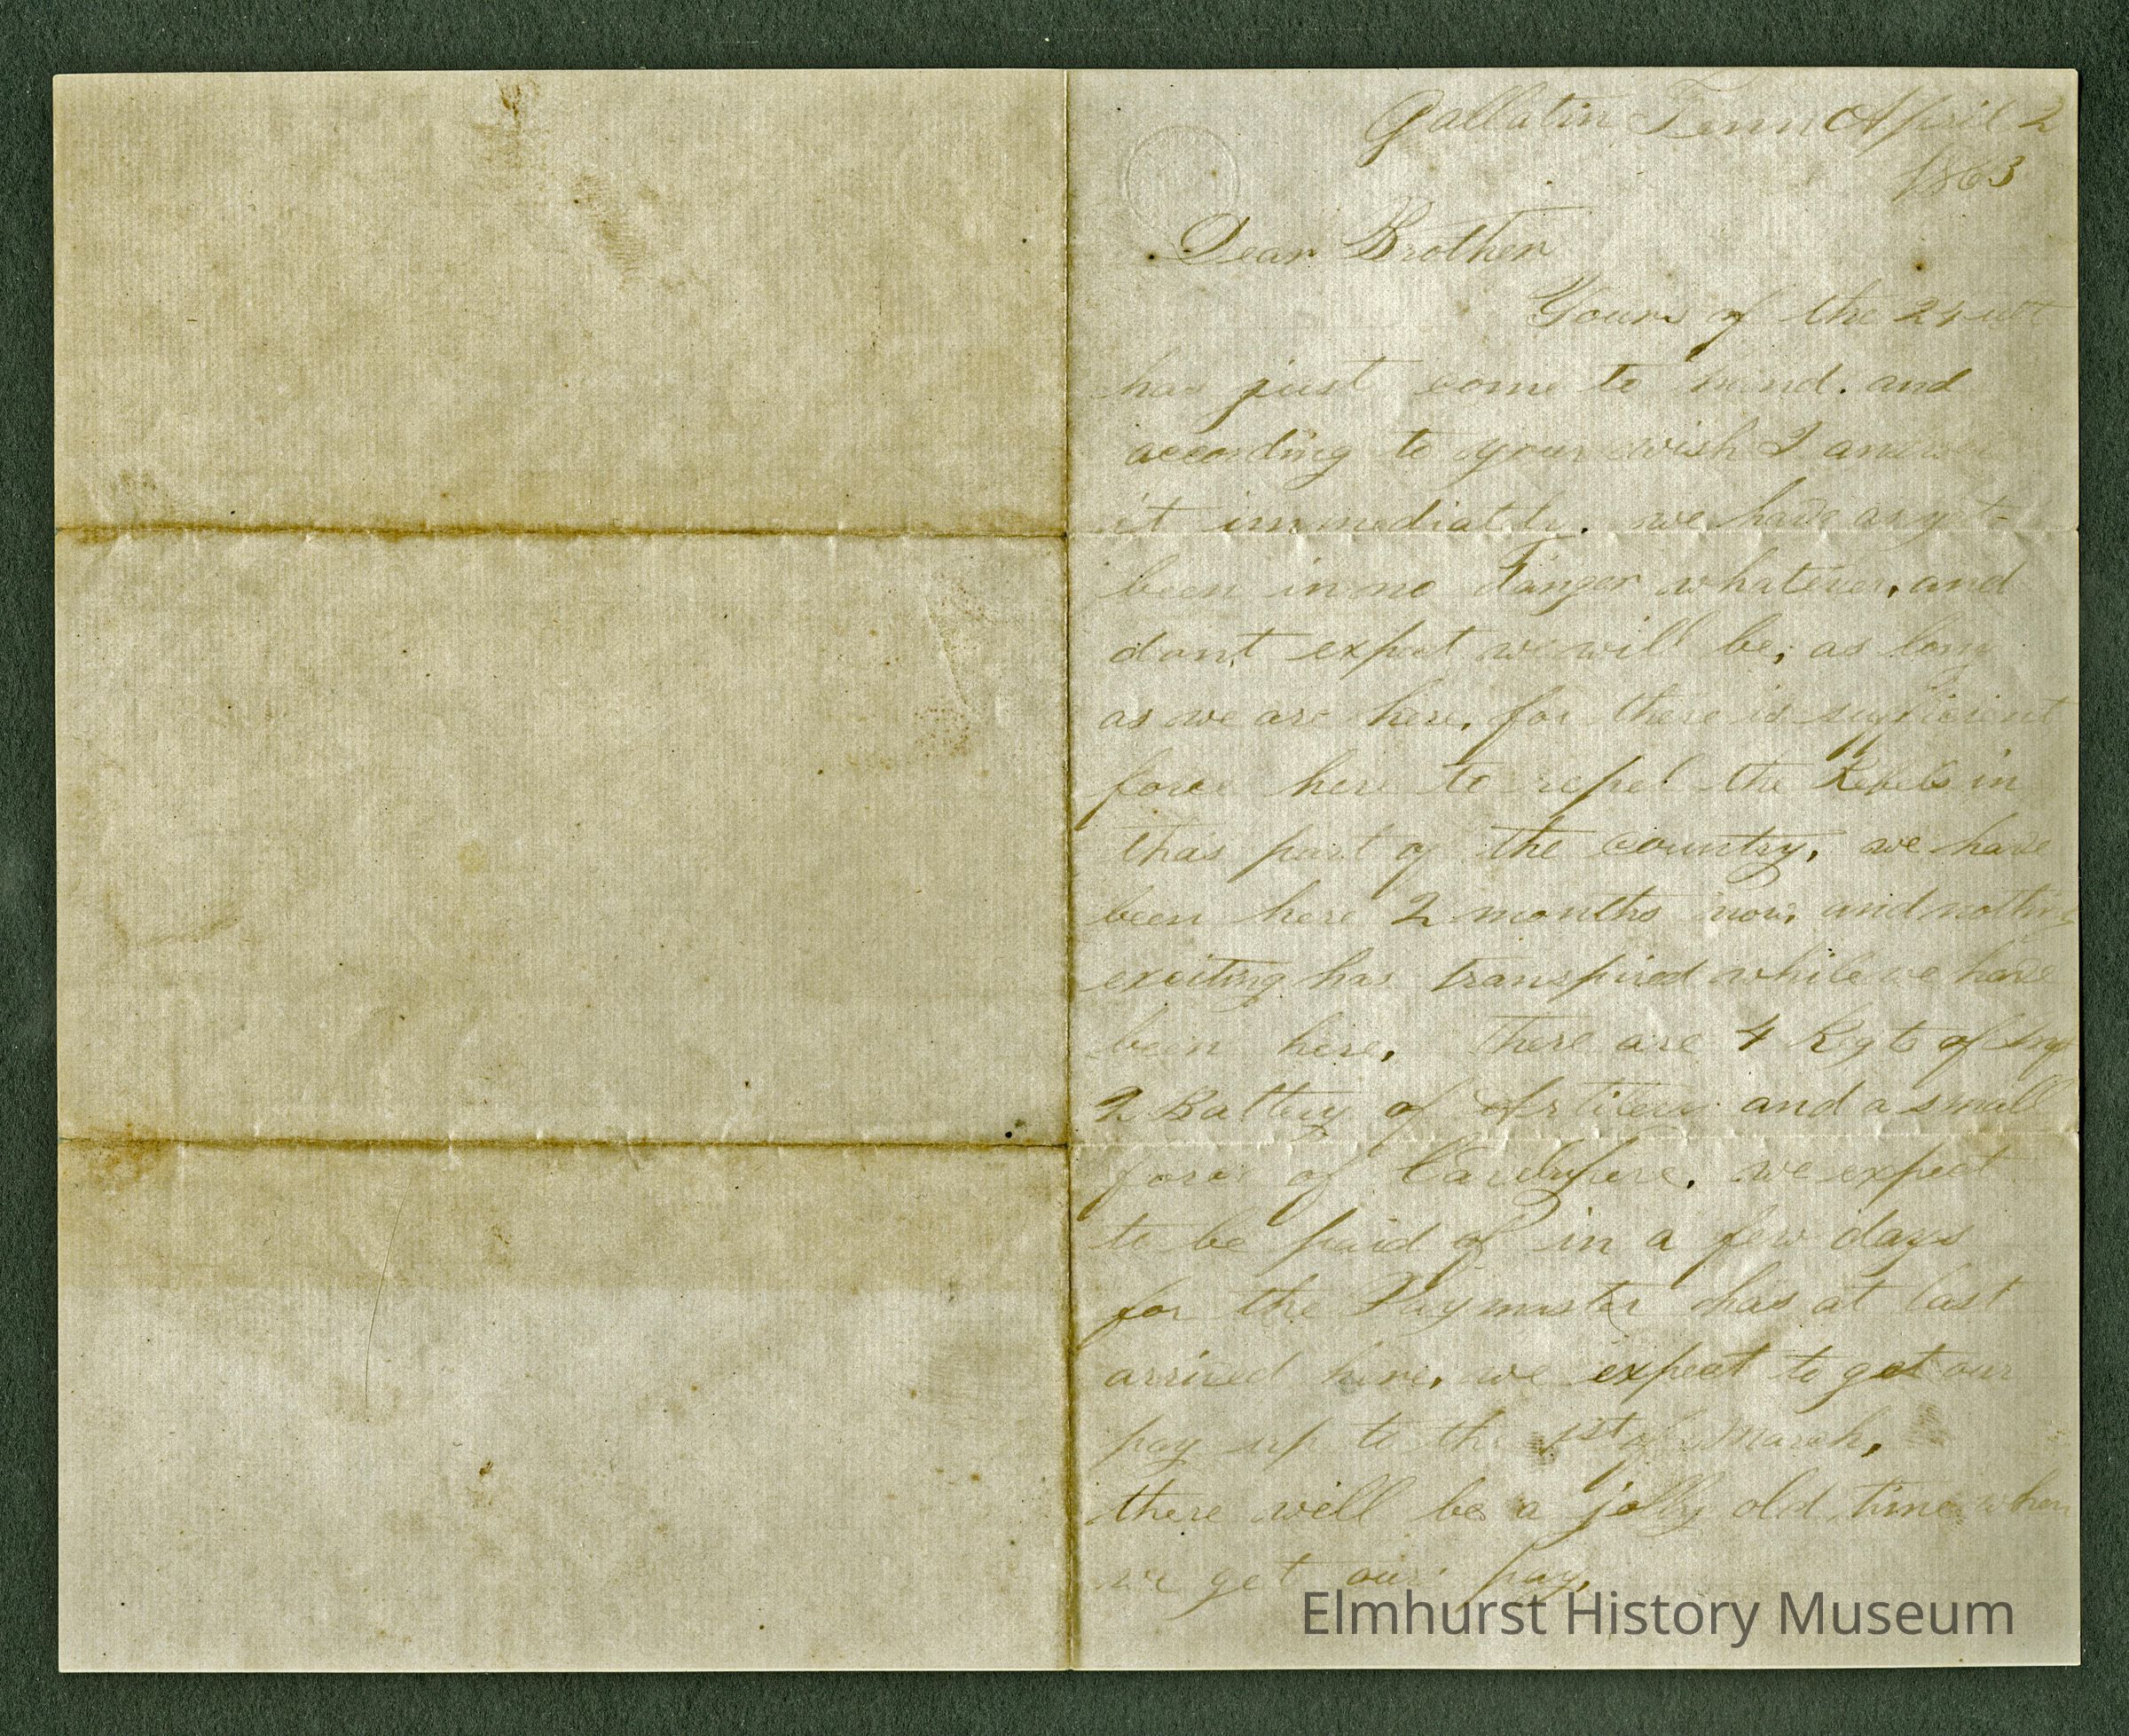 Gallatin Tenn April 2
1863
Dear Brother
Yours of the 24 ult
has just come to hand. and
according to your wish I answer
it immediately. we have as yet
been in no danger whatever, and
dont expect we will be, as long
as we are here, for there is sufficient
force here to repel the Rebels in
this part of the country, we have
been here 2 months now, and nothing
exciting has transpired while we have
been here, There are 4 Regts of Inft
2 Battery of Artilery and a small
force of we expect
to be paid of in a few days
for the Paymaster has at last
arrived here, we expect to get our
pay up to the 1st of March,
there will be a jolly old time when
we get our pay,
Elmhurst History Museum